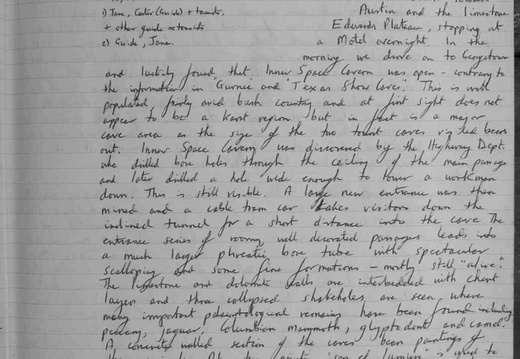 1) Jane, Caster (Guide) + tourists,
+ other guide + tourists.
2) Guide, Jane.
Austin and the limestone
Edwards Plateau, stopping at
a Motel overnight. In the
morning we drove on to Georgetown
and luckily found that Inner Space Cavern was open - contrary to
the information in "Gurnee and "Texas Show Caves". This is well
populated, fairly arid bush country and at first sight does not
appear to be a karst region, but in fact is a major
cave area as the size of the two tourist caves visited bears
out. Inner Space Cavern was discovered by the Highway Dept.
who drilled bore holes through the ceiling of the main passage
and later drilled a hole wide enough to lower a workman
down. This is still visible. A large new entrance was then
mined and a cable tram car takes visitors down the
inclined tunnel for a short distance into the cave. The
entrance series of roomy, well decorated passages leads into
a much larger phreatic bore tube with spectacular
scalloping and some fine formations - mostly still "alive".
The limestone and dolomite walls are interbedded with chert
layers and three collapsed shakeholes are seen, where
many important palaeontological remains have been found including
peccary, jaguar, Columbian mammoth, glyptodont and camel.
A concrete walled section of the cave paintings of